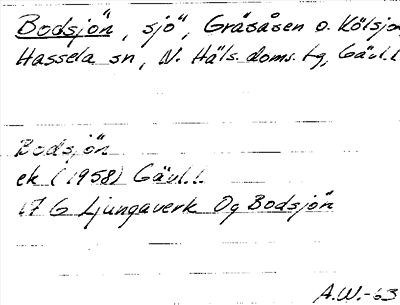 Bodsjön, sjö, Gråsåsen o. Kölsjön
Hassela sn, N. Häls. doms. tg, Gävl. l.
Bodsjön
ek (1958) Gävl. l.
17 G Ljungaverk Og Bodsjön
A.W.-63